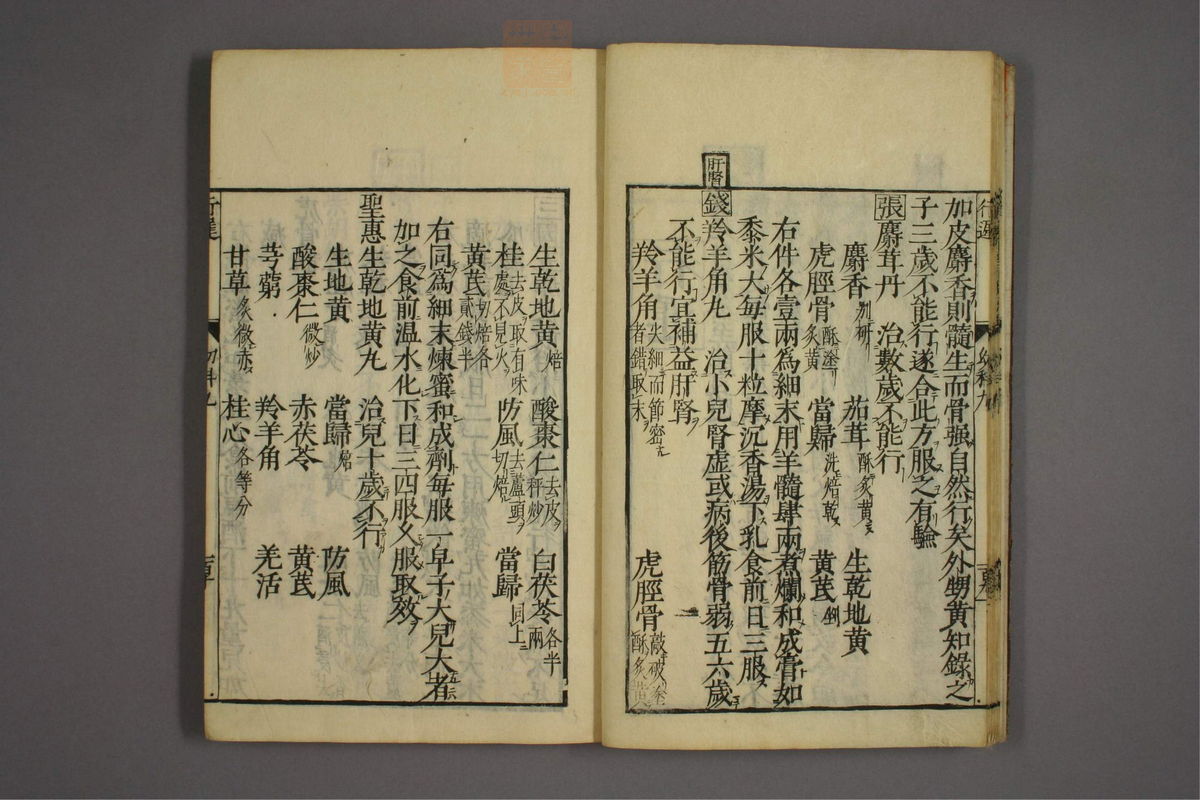 加皮麝香則髓生而骨强自然行矣外甥黄知錄之
子三歲不能行遂合此方服之有驗
張麝茸丹 治數歲不能行
麝香別研 茄茸酥炙黄 生乾地黄
虎脛骨酥塗炙黄 當歸洗焙乾 黄芪剉
右件各壹兩爲細末用羊髓肆兩煮爛和成膏如
黍米大每服十粒摩沉香湯下乳食前日三服
肝腎
錢羚羊角丸 治小兒腎虛或病後筋骨弱五六歲
不能行宜補益肝腎
羚羊角尖細而節密者錯取末 虎脛骨敲破塗酥炙黄
生乾地黄焙 酸棗仁去皮秤炒 白茯苓各半兩
桂去皮取有味處不見火 防風去蘆頭切焙 當歸同上
黄芪切焙各貳錢半
右同爲細末煉蜜和成劑每服一皁子大兒大者
加之食前温水化下日三四服乆服取效
聖惠生乾地黄丸 治兒十歲不行
生地黄 當歸焙 防風
酸棗仁微炒 赤茯苓 黄芪
芎藭 羚羊角 羌活
甘草炙微赤 桂心各等分
行遲
幼科九